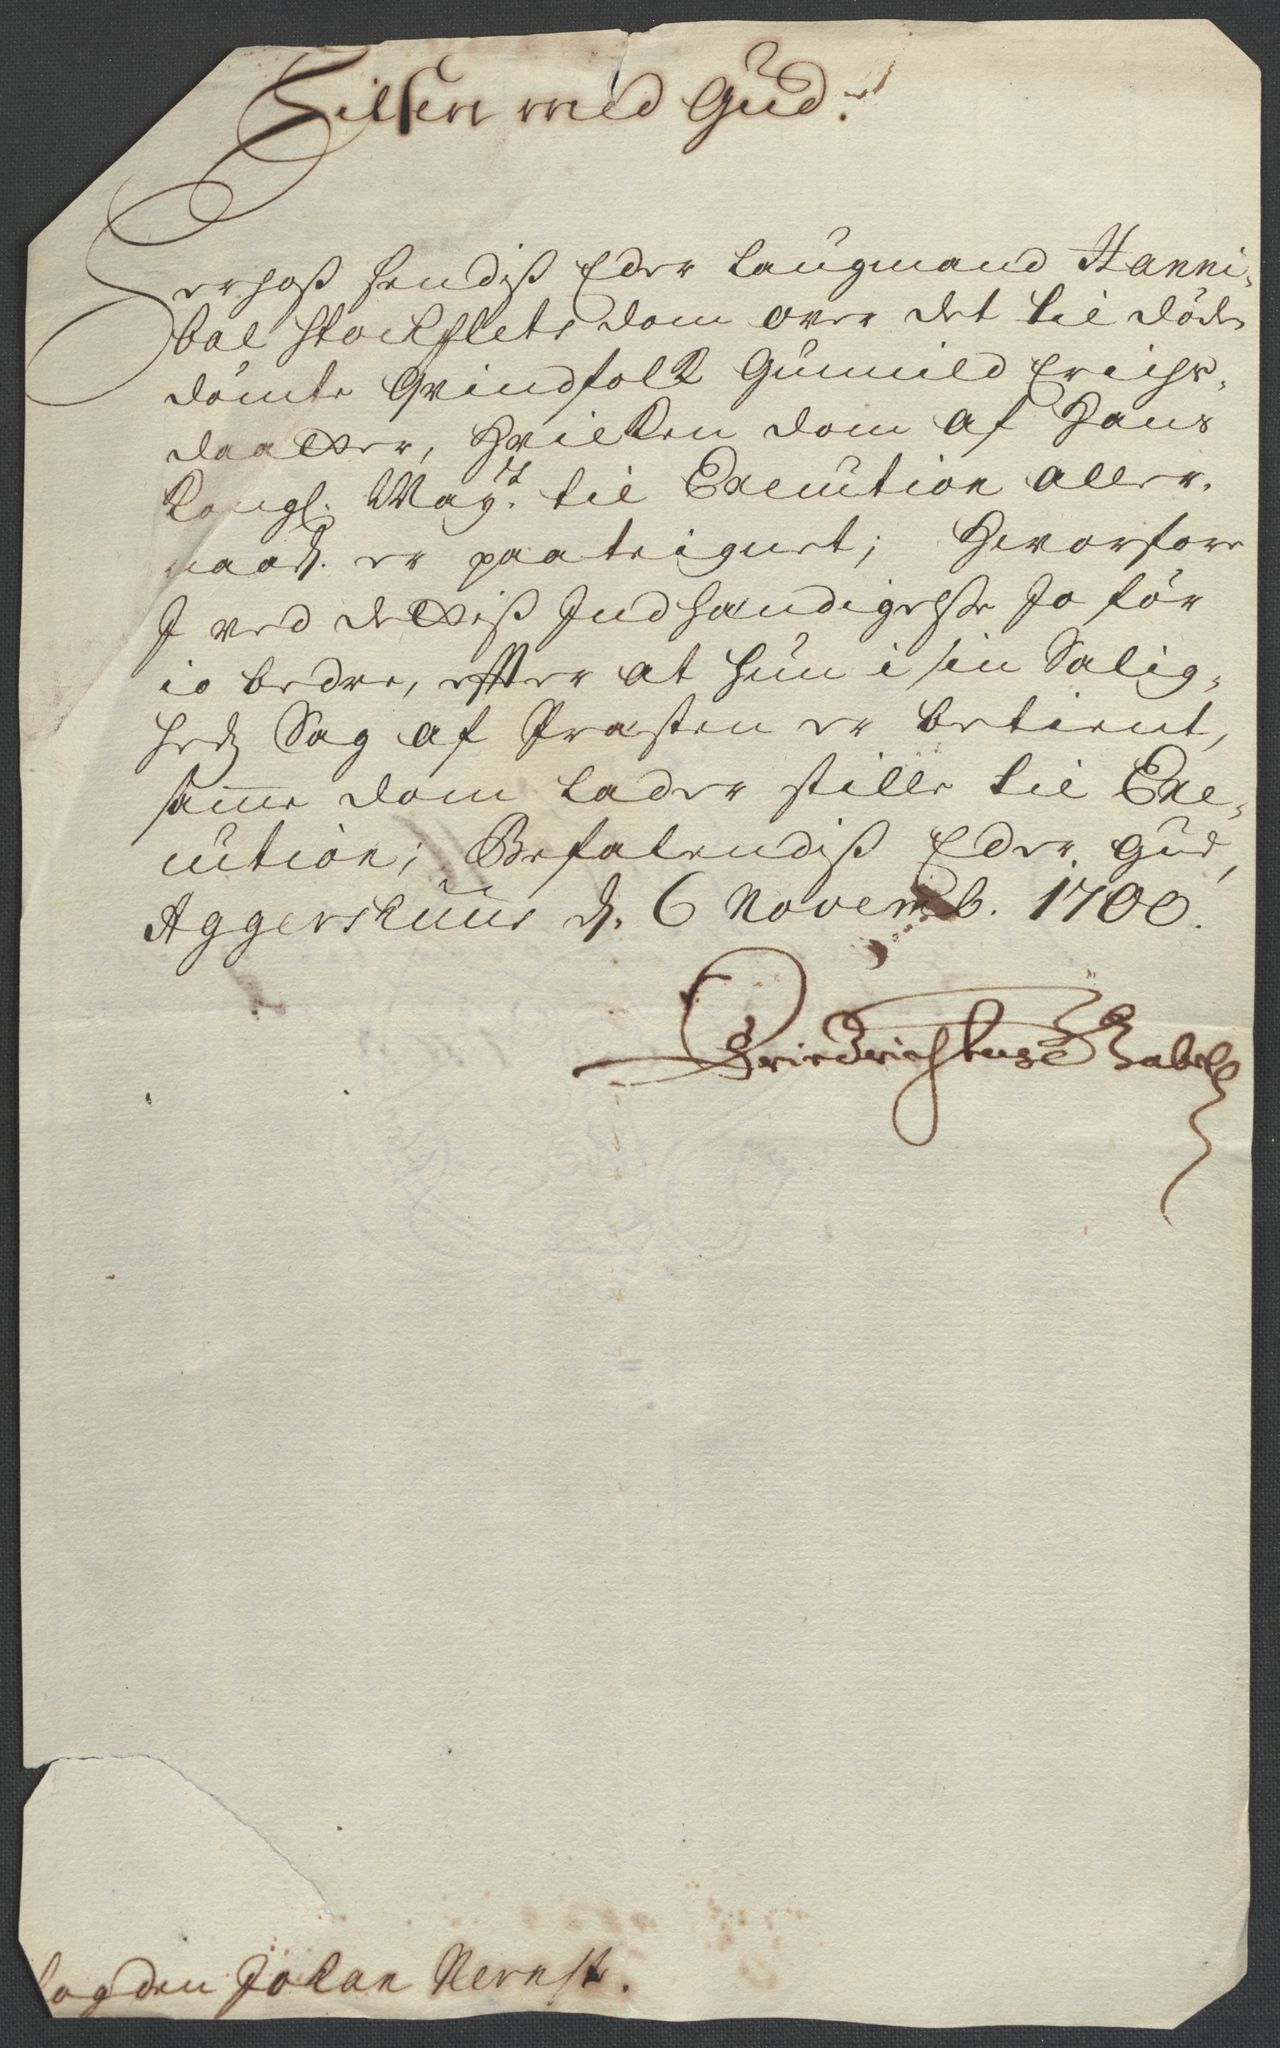 Hilsen med Gud.
Herhoß sendiß Eder Laugmand Hanni-
bal Stockflets dom over det til döde
dömte Qvindfolk Gunnild Erichs-
daatter, hvilken dom af Hans
Kongl. May.t til Execution aller-
naad. er paateignet; Hvorfore
I ved dettiß Indhændigelse jo för
io bedre, effter at hun i sin Salig-
hedz Sag af Præsten er betient,
samme dom lader stille til Exe-
cution; Befalendiß Eder Gud,
Aggershuus d. 6 Novemb. 1700.
Friedrich Buse Gabel
fogden Johan Nernst.